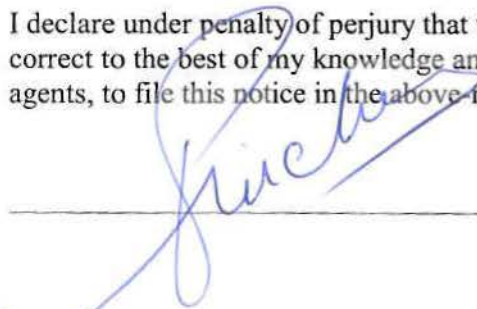 I declare under penalty of perjury that
correct to the best of my knowledge an
agents, to file this notice in the above-f